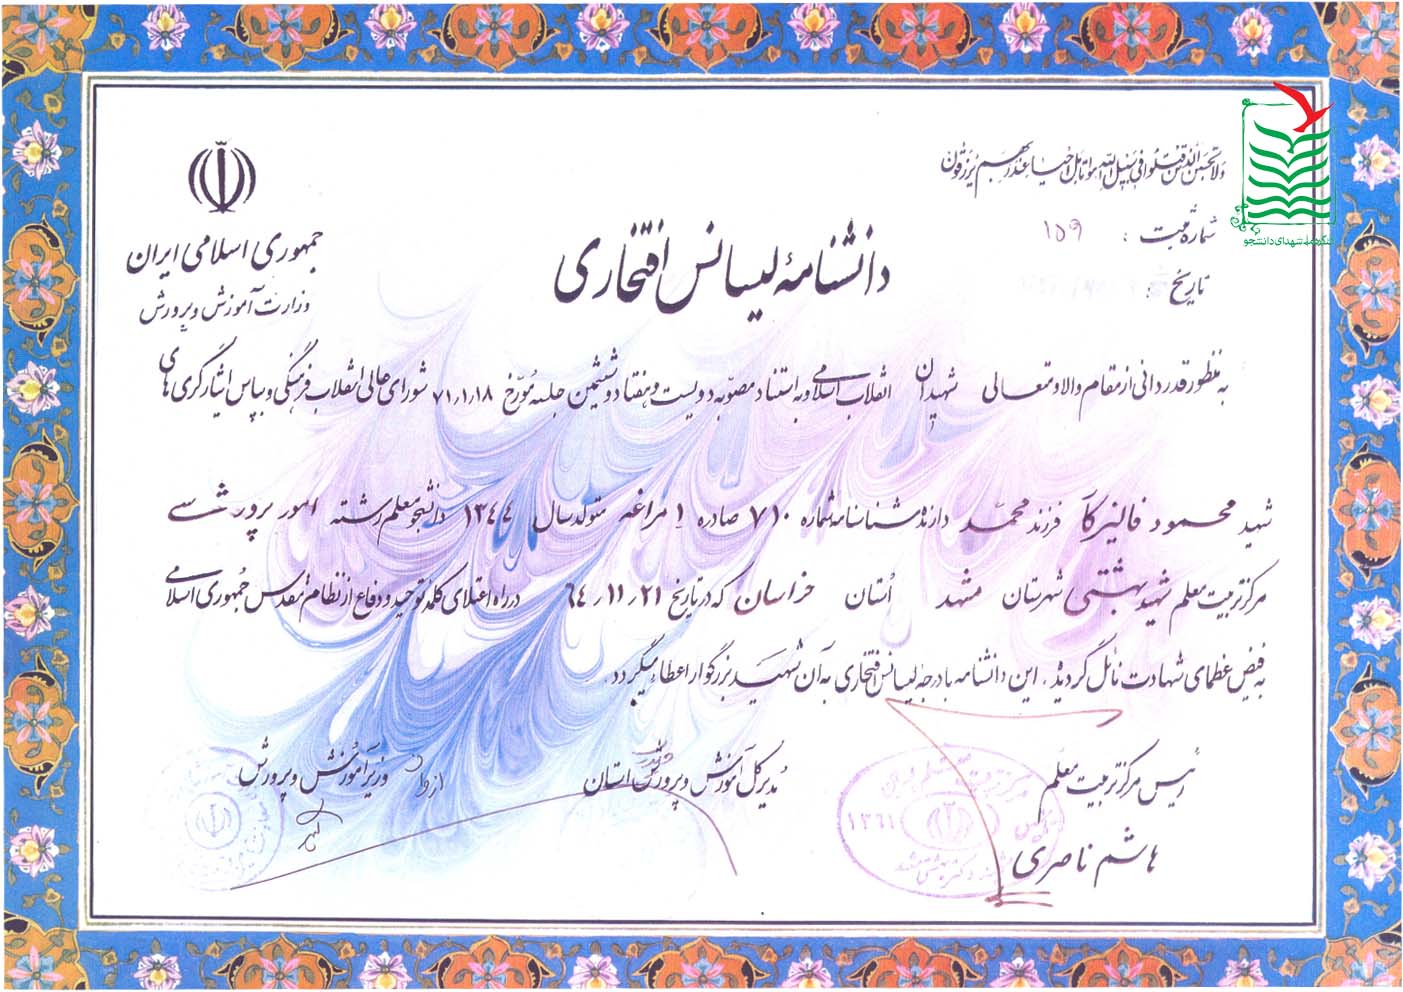 ولا تحسبن الذین قتلوا فی سبیل الله امواتا بل احیاء عند ربهم یرزقون
کنگره ملی شهدای دانشجو
جمهوری اسلامی ایران
وزارت آموزش و پرورش
شماره ثبت : ۱۵۹
تاریخ :
دانشنامهٔ لیسانس افتخاری
به منظور قدردانی از مقام والا و متعالی شهیدان انقلاب اسلامی و به استناد مصوبه دویست و هفتاد و ششمین جلسه مورّخ ۷۱,۱,۱۸ شورای عالی انقلاب فرهنگی و بپاس ایثارگری های
شهید محمود فالنیرکآ فرزند محمّد دارنده شناسنامه شماره ۷۱۰ صادره ا مراغه متولد سال ۱۳۴۴ دانشجو معلم رشته امور پرورشی
مرکز تربیت معلم شهید بهشتی شهرستان مشهد اُستان خراسان که در تاریخ ۶۴,۱۱,۲۱ در راه اعتلای کلمه توحید و دفاع از نظام مقدس جمهوری اسلامی
به فیض عظمای شهادت نائل گردیده , این دانشنامه با درجه لیسانس افتخاری به آن شهید بزرگوار اعطاء میگردد .
رئیس مرکز تربیت معلم
هاشم ناصری
مدیر کل آموزش و پرورش استان
وزیر آموزش و پرورش
۱۳۶۱